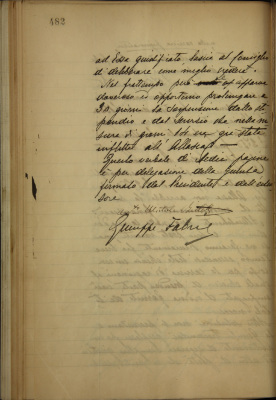 482
ad Essa giustificato lascia al Consiglio
di deliberare come meglio crederà.
Nel frattempo però
doveroso ed opportuno prolungare a
30 giorni la sospensione dallo sti
pendio e dal servizio che nella mi
sura di giorni era già stata
inflitta all'
Questo verbale di sedici pagine
è per delegazione della Giunta
firmato dal Presidente e dall'asses
sore
Giuseppe Fabris